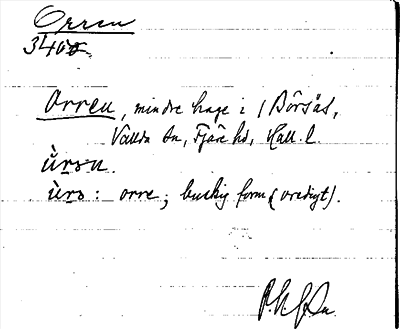 Orren
3400
Orren, mindre hage i 1 Börsås,
Vallda sn, Fjäre hd, Hall. l.
ùrən.
ùrə: orre; buskig form (oredigt).